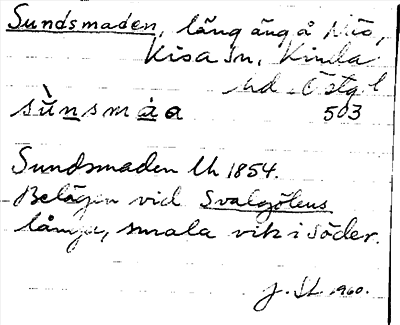 Sundsmaden, lång äng å Nio,
Kisa sn, Kinda
hd Östg. l
sùnsmáa 503
Sundsmaden lh 1854.
Belägen vid Svalgölens
långa, smala vik i söder.
J. St. 1960.